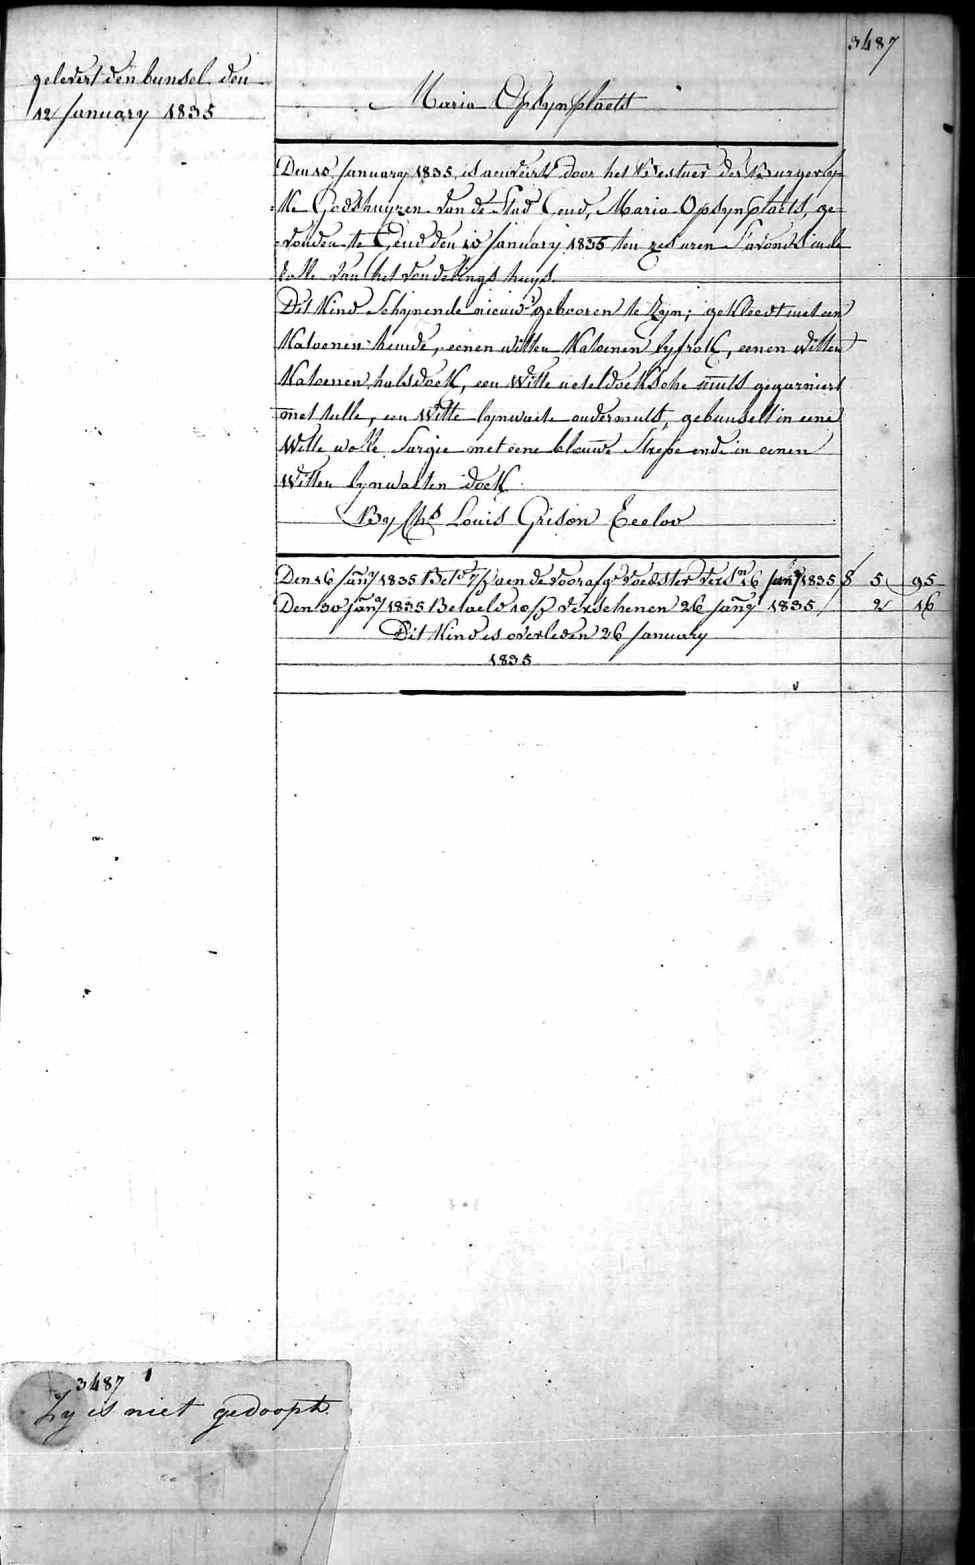 3487
gelevert den bunsel den
12 January 1835
Maria Opsynplaets
Den 10 January 1835, is aenveirt door het Bestuer der Burgerly-
ke Godshuyzen van de Stad Gend, Maria Opsynplaets, ge-
vonden te Gend den 10 January 1835 ten zes uren s'avonds in de
rolle van het vondelings huys.
Dit Kind Schynende nieuws gebooren te Zyn; gekleedt met een
Katoenen hemde, eenen witten Katoenen lyfrok, eenen witten
Katoenen halsdoek, een witte neteldoeksche muts gegarniert
met tulle, een witte lynwaete ondermuts, gebunselt in eene
Witte wolle Sargie met eene blauwe Strepe ende in eenen
witten lynwaeten doek.
By Chs Louis Grison Eecloo
Den 16 Jany 1835 Bet aen de voorafge voedster vers 16 Jany 1835 5 95
Den 30 Jany 1835 Betaeld verschenen 26 Jany 1835 2 16
Dit Kind is overleden 26 January
1835
3487
Zy is niet gedoopt.